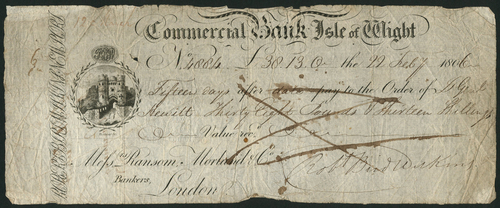 Commercial Bank Isle of Wight
No. 4864 £38.13.0 the 22 Feby 1806
Fifteen days after date pay to the Order of
Hewitt Thirty Eight Pounds & Thirteen Shillings
Value rec
Messrs Ransom, Morland & Co.
Bankers,
London